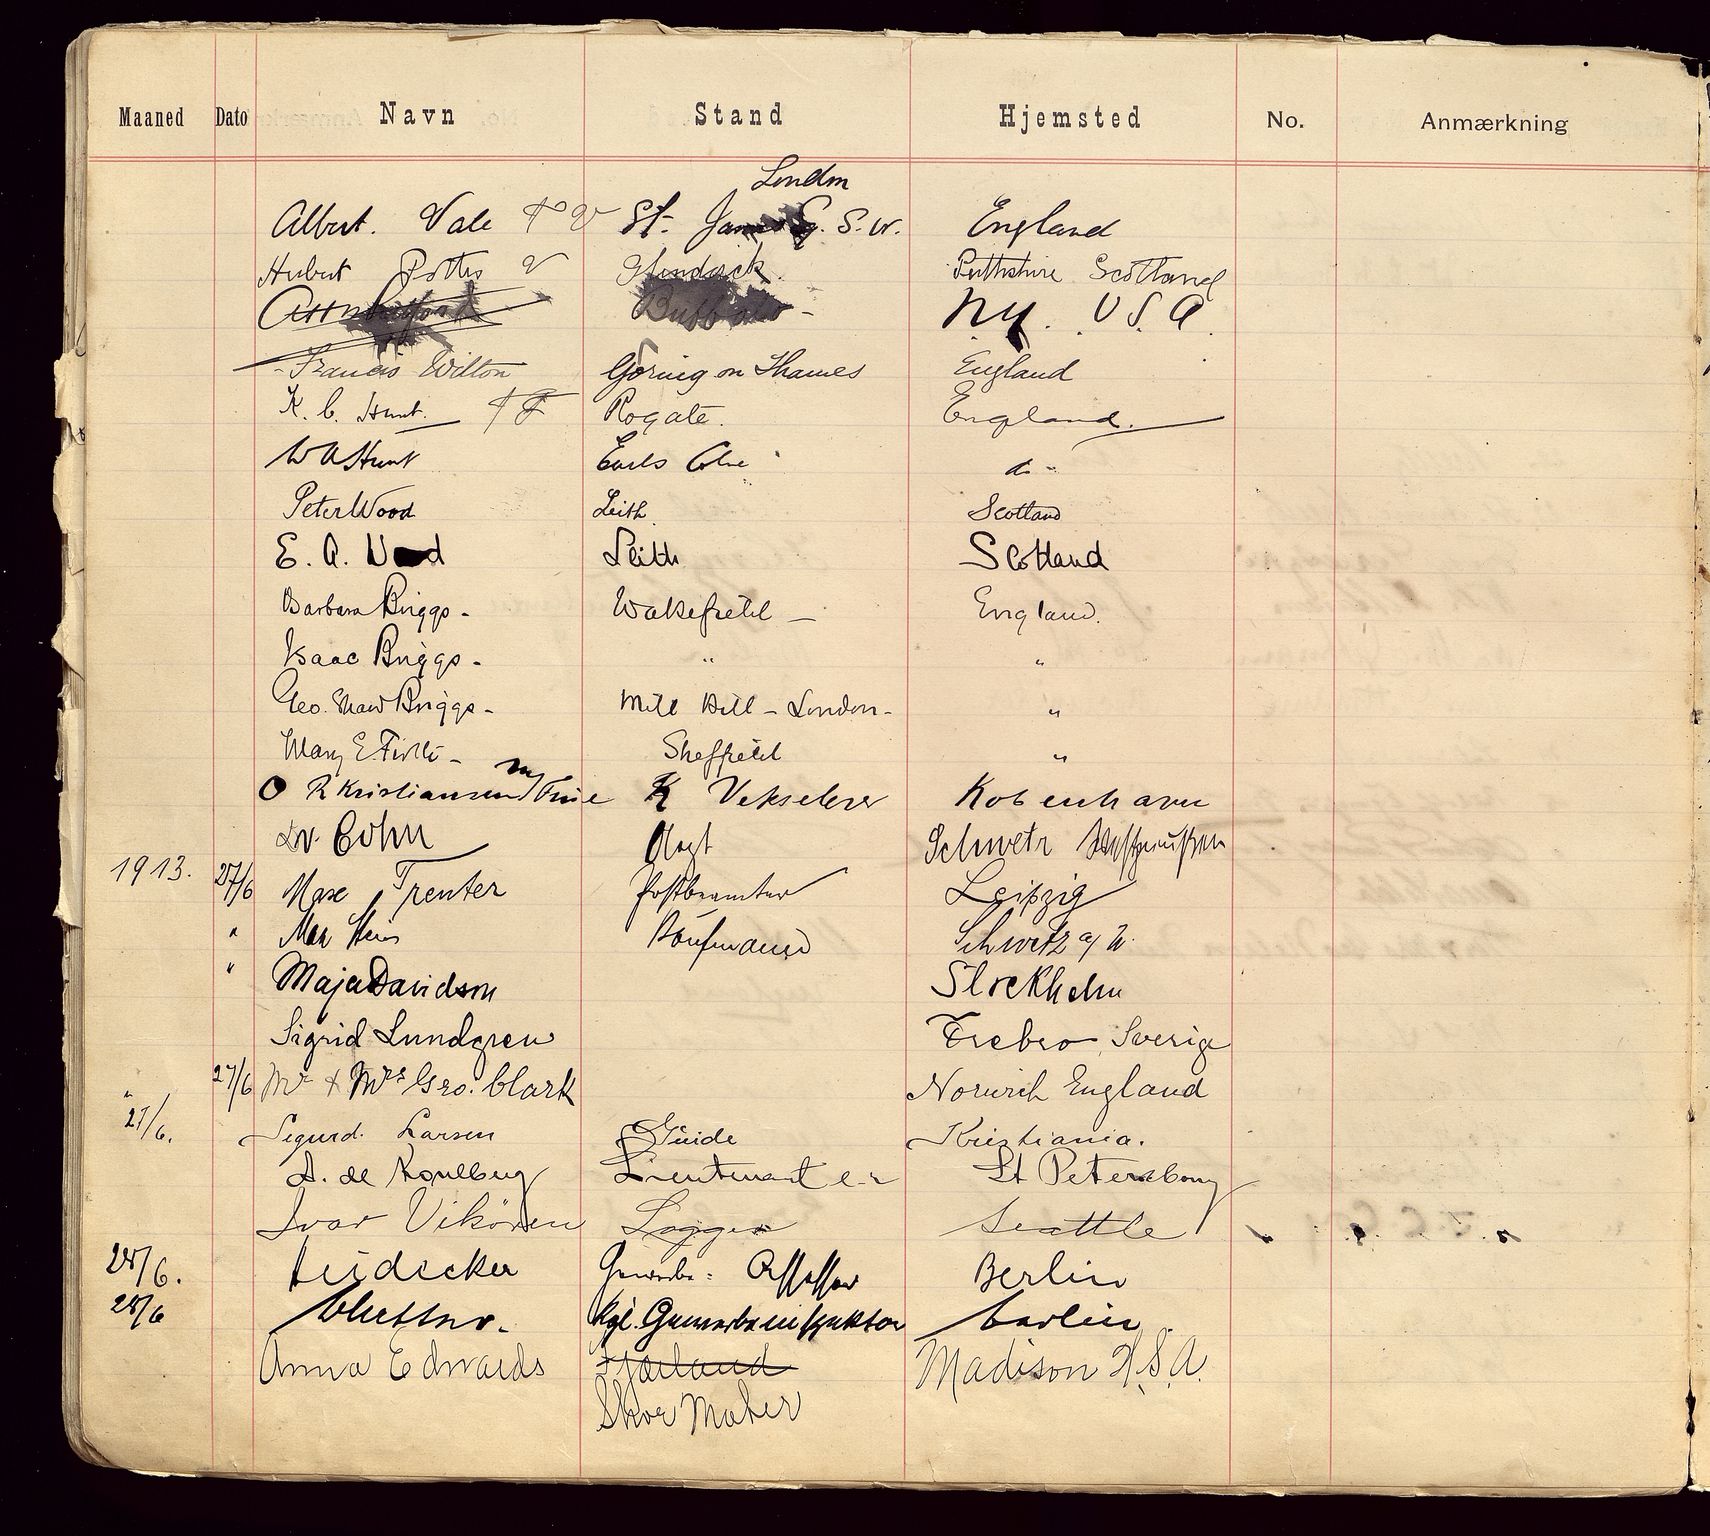 Maaned Dato Navn Stand Hjemsted No. Anmærkning
London
Albert. Vale St. James Sq. S.W. England
Hubert Potts Glendoick. Perthshire Scotland
Buffalo - NY. U.S.A.
Francis Wilton Goring on Thames England
K. C. Hunt. Rogate. England.
W A Hunt Earls Colne do -
Peter Wood Leith. Scotland
E. A. Wood Leith Scotland
Barbara Briggs - Wakefield - England.
Isaac Briggs - " "
Geo. Shaw Briggs - Mill Hill - London - "
Mary E. Firth - Sheffield "
R Kristiansen m/ Frue Vekselerer Kobenhavn
Dr. Cohn Schwetz Westpreußen
1913. 27/6 Max Trenter Postbeamter Leipzig
" Max Kaufmann Schwetz a/W.
" Maja Davidson Stockholm
Sigrid Lundgren Örebro, Sverige
27/6 Mr & Mrs Geo. Clark Norwich England
" 27/6. Sigurd. Larsen Guide Kristiania.
A. de Lieutenant St Petersbourg
Ivar Vikören Logger Seattle
28/6. Lüdecker Gewerbe- Assessor Berlin
28/6 Kgl. Gewerbeinspektor Berlin.
Anna Edwards Fjærland Madison U.S.A.
Skoe Maker